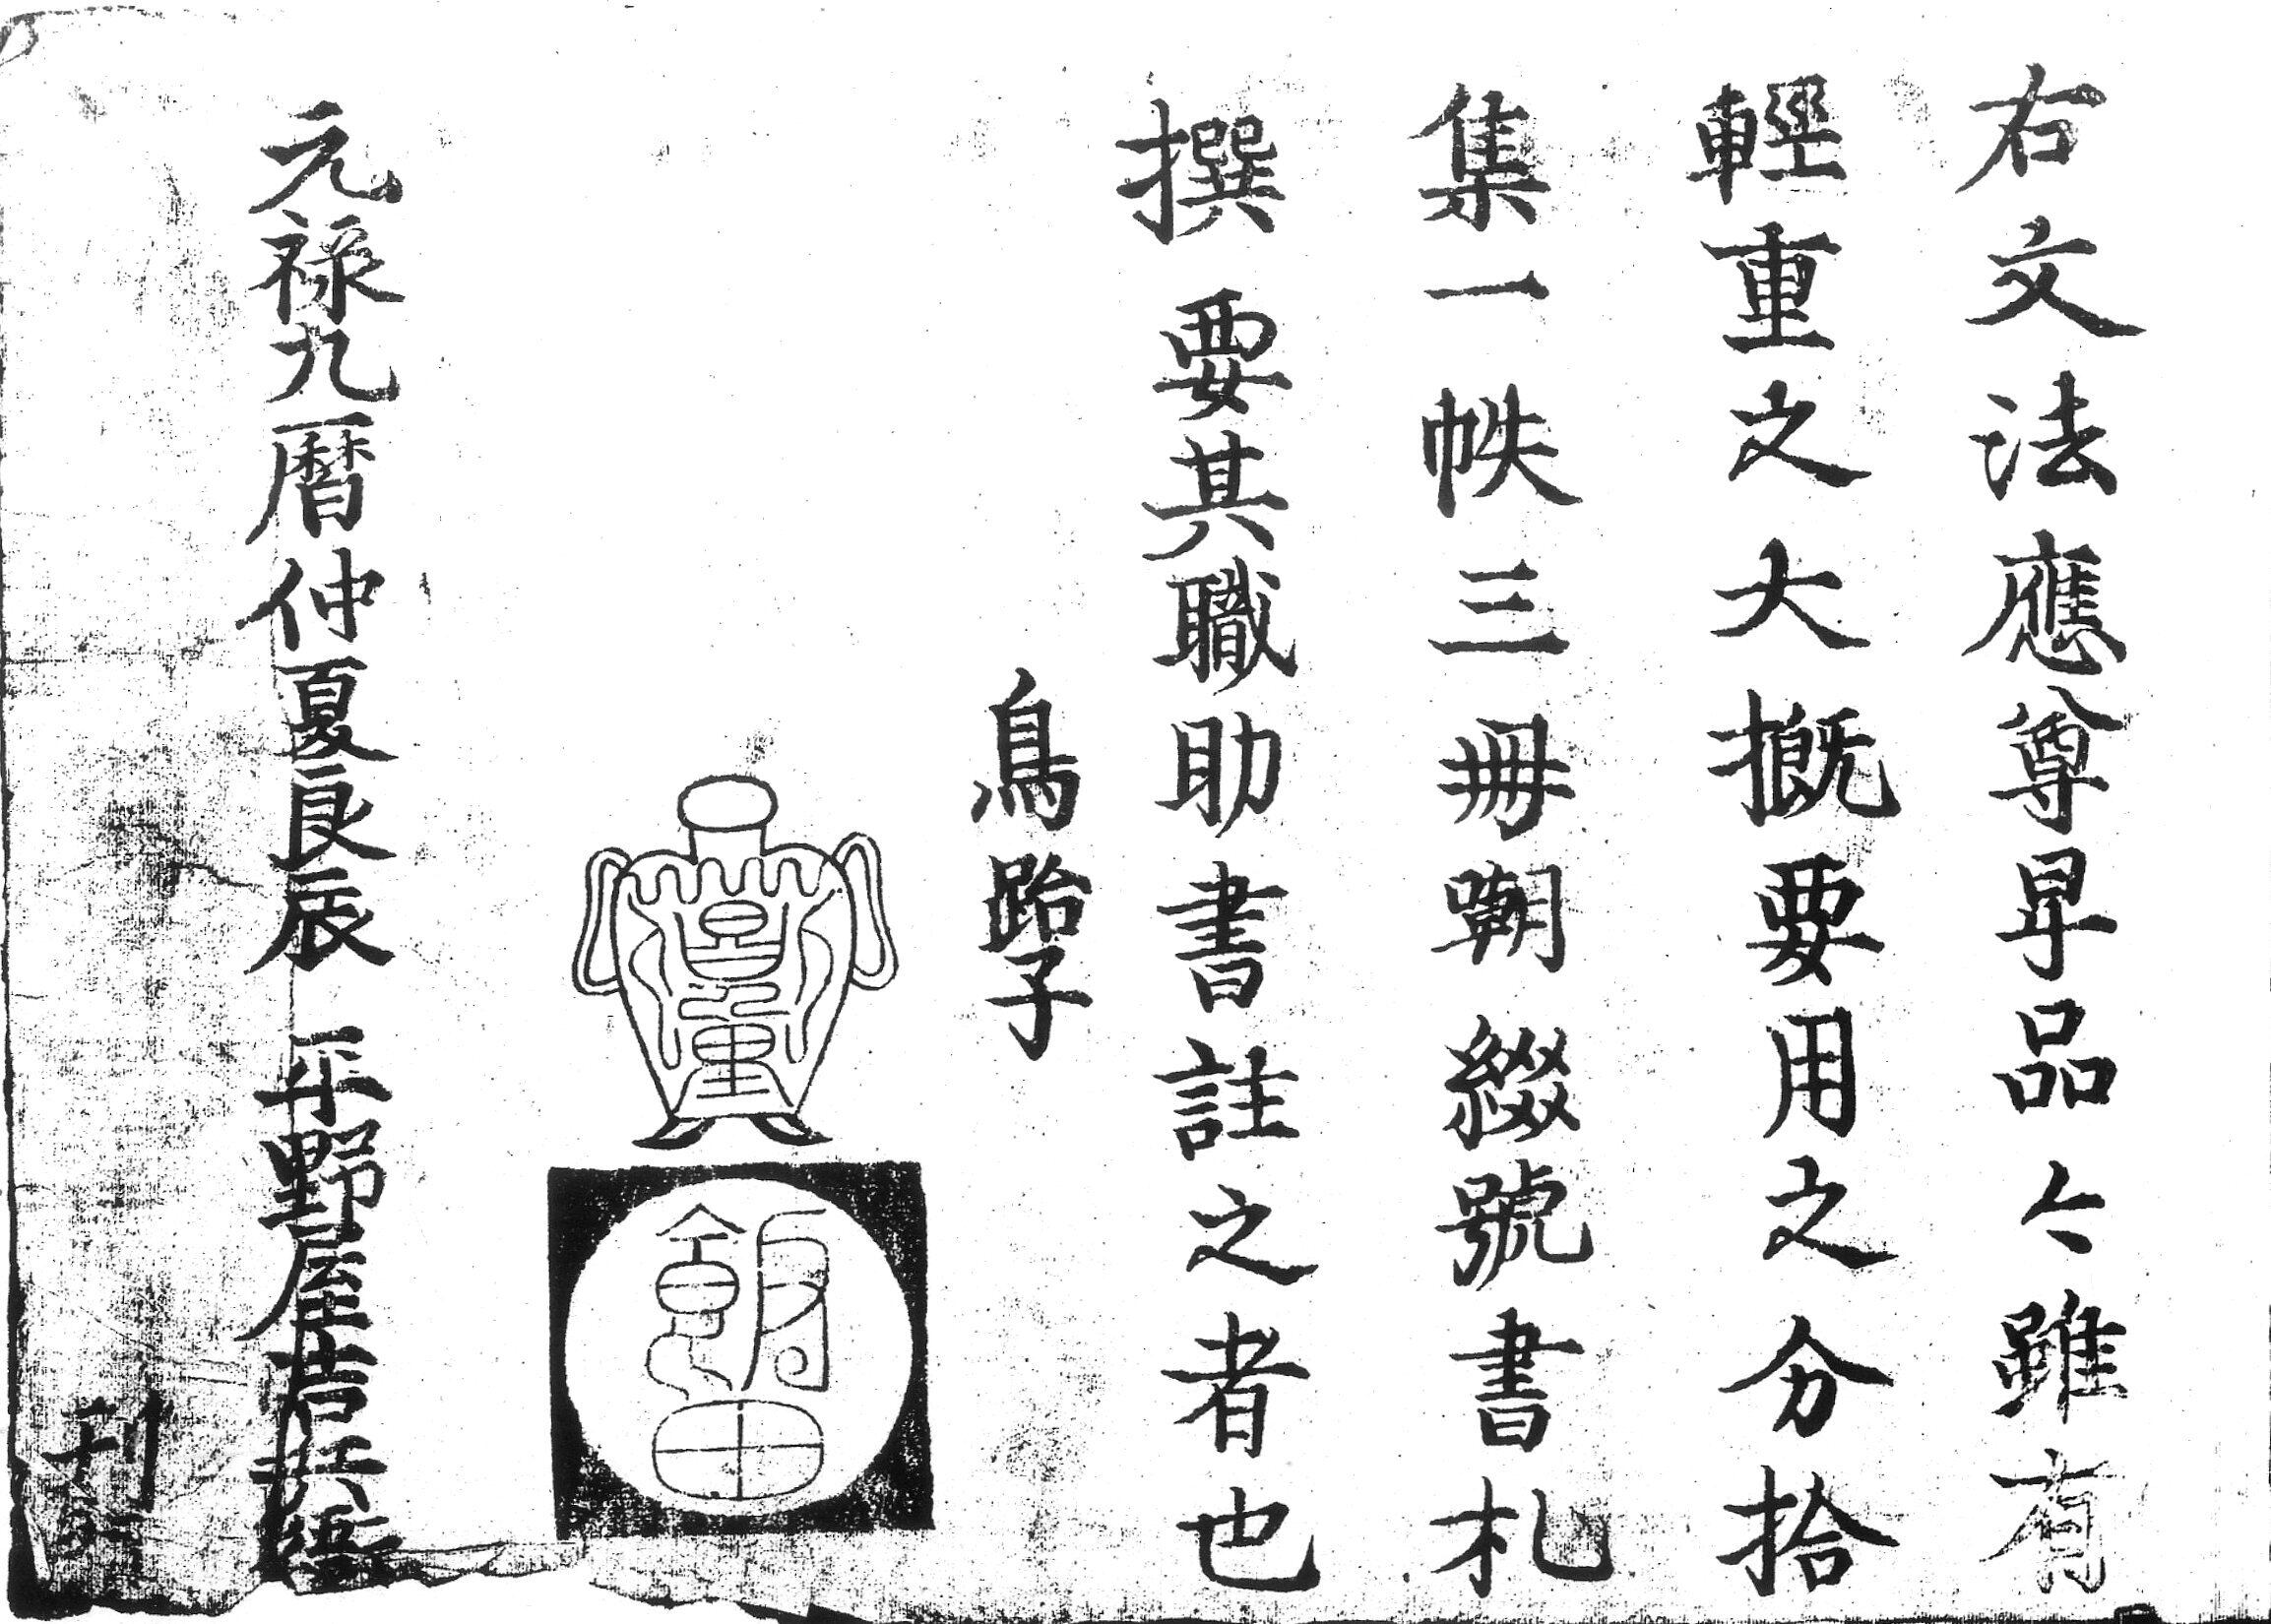 右文法應尊卑品々雖有
輕重之大概要用之分拾
集一帙三冊嘲綴號書札
撰要其職助書註之者也
鳥跆子
元禄九暦仲夏良辰 平野屋吉兵衛
刊行